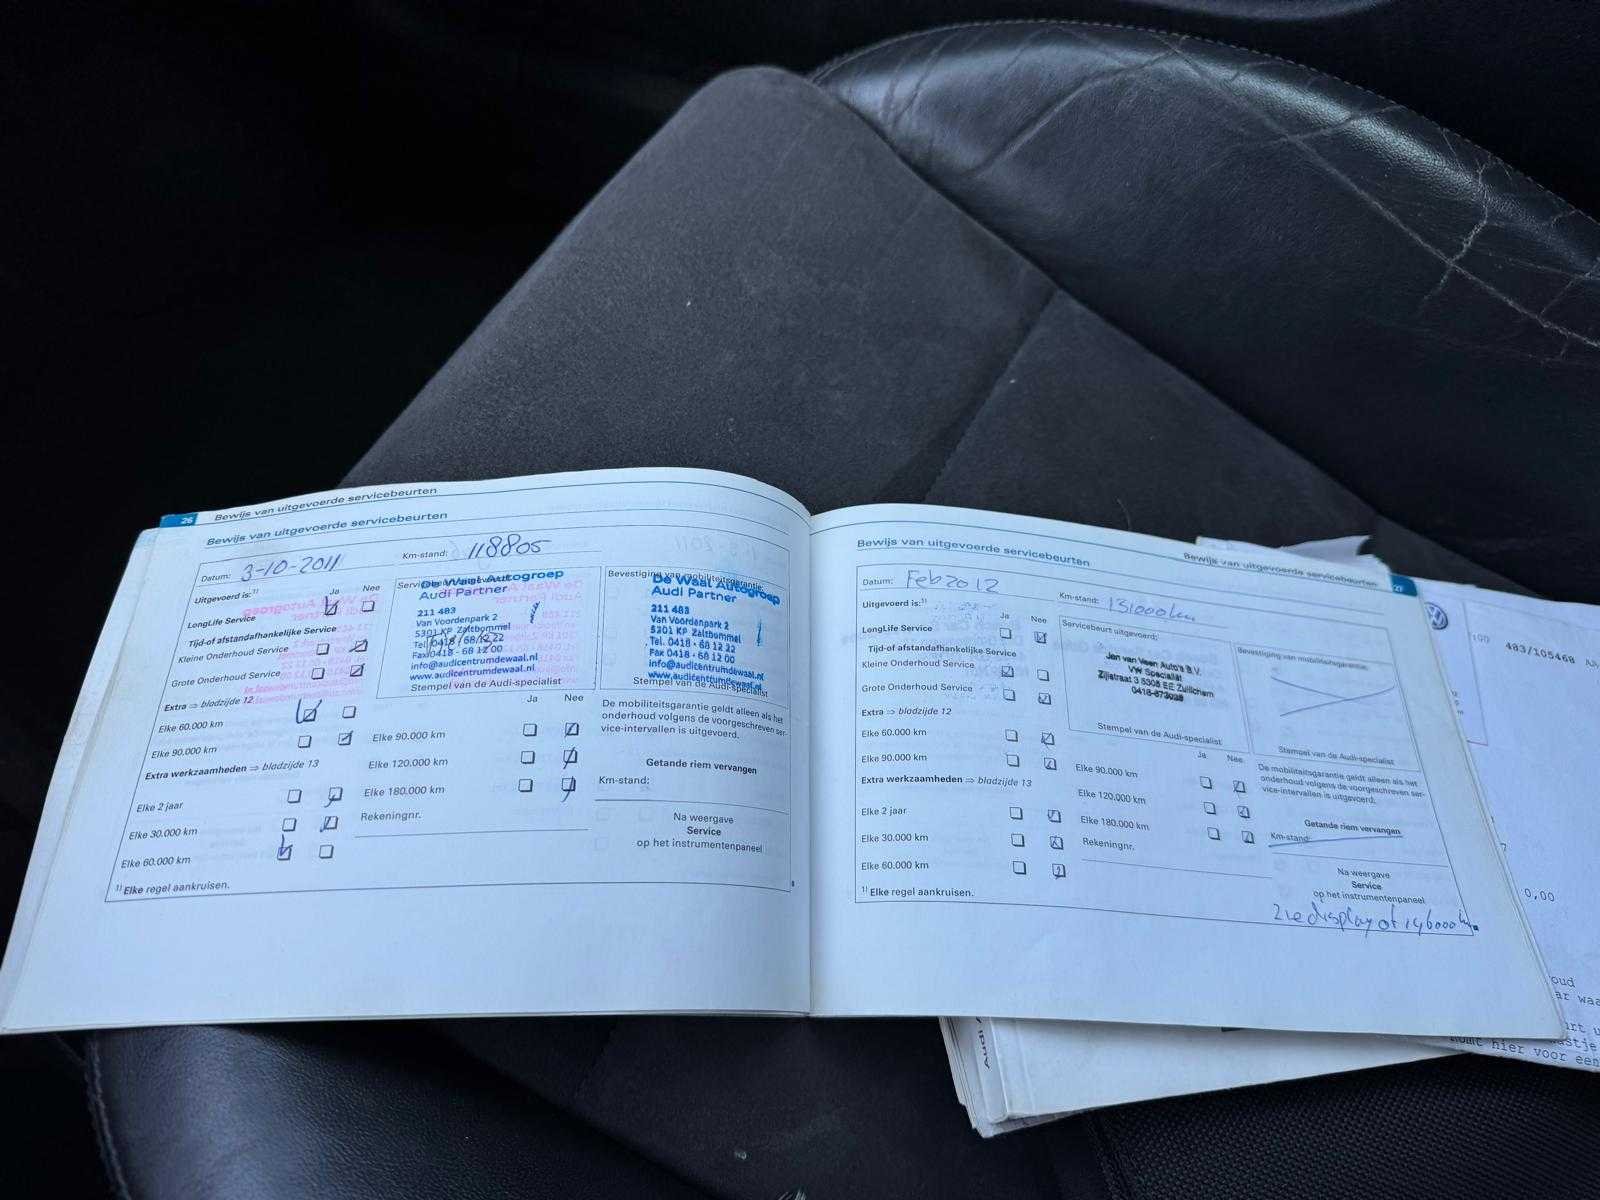 26
Bewijs van uitgevoerde servicebeurten
Bewijs van uitgevoerde servicebeurten
Datum: 3-10-2011
Km-stand: 118805
Uitgevoerd is:¹⁾
Ja
Nee
LongLife Service
Tijd-of afstandafhankelijke Service
Kleine Onderhoud Service
Grote Onderhoud Service
Extra ⇒ bladzijde 12
Elke 60.000 km
Elke 90.000 km
Extra werkzaamheden ⇒ bladzijde 13
Elke 2 jaar
Elke 30.000 km
Elke 60.000 km
¹⁾ Elke regel aankruisen.
De Waal Autogroep
Audi Partner
211 483
Van Voordenpark 2
5301 KP Zaltbommel
Tel. 0418 - 68 12 22
Fax 0418 - 68 12 00
info@audicentrumdewaal.nl
www.audicentrumdewaal.nl
Stempel van de Audi-specialist
Ja
Nee
Elke 90.000 km
Elke 120.000 km
Elke 180.000 km
Rekeningnr.
Bevestiging van mobiliteitsgarantie:
De Waal Autogroep
Audi Partner
211 483
Van Voordenpark 2
5301 KP Zaltbommel
Tel. 0418 - 68 12 22
Fax 0418 - 68 12 00
info@audicentrumdewaal.nl
www.audicentrumdewaal.nl
Stempel van de Audi-specialist
De mobiliteitsgarantie geldt alleen als het
onderhoud volgens de voorgeschreven ser-
vice-intervallen is uitgevoerd.
Getande riem vervangen
Km-stand:
Na weergave
Service
op het instrumentenpaneel
27
Bewijs van uitgevoerde servicebeurten
Bewijs van uitgevoerde servicebeurten
Datum: Feb 2012
Km-stand: 131000km
Uitgevoerd is:¹⁾
Ja
Nee
LongLife Service
Tijd-of afstandafhankelijke Service
Kleine Onderhoud Service
Grote Onderhoud Service
Extra ⇒ bladzijde 12
Elke 60.000 km
Elke 90.000 km
Extra werkzaamheden ⇒ bladzijde 13
Elke 2 jaar
Elke 30.000 km
Elke 60.000 km
¹⁾ Elke regel aankruisen.
Servicebeurt uitgevoerd:
Jan van Veen Auto's B.V.
VW Specialist
Zijlstraat 3 5305 EE Zuilichem
0418-673028
Stempel van de Audi-specialist
Ja
Nee
Elke 90.000 km
Elke 120.000 km
Elke 180.000 km
Rekeningnr.
Bevestiging van mobiliteitsgarantie:
Stempel van de Audi-specialist
De mobiliteitsgarantie geldt alleen als het
onderhoud volgens de voorgeschreven ser-
vice-intervallen is uitgevoerd.
Getande riem vervangen
Km-stand:
Na weergave
Service
op het instrumentenpaneel
zie display of 146000km
483/105468
0,00
hier voor een
Audi